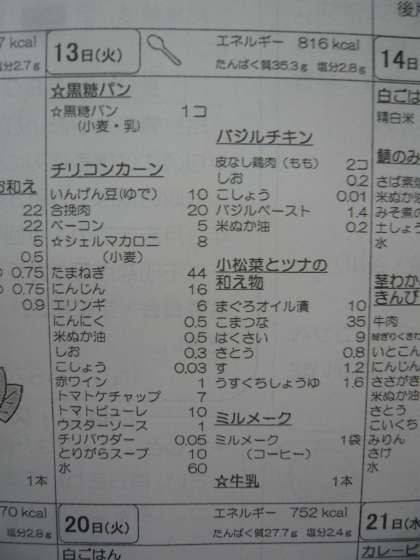 後
7 kcal
塩分2.7g
13日(火)
エネルギー 816 kcal
たんぱく質35.3g 塩分2.8g
14日
☆黒糖パン
☆黒糖パン 1コ
(小麦・乳)
チリコンカーン
いんげん豆(ゆで) 10
合挽肉 20
ベーコン 5
☆シェルマカロニ 8
(小麦)
たまねぎ 44
にんじん 16
エリンギ 6
にんにく 0.5
米ぬか油 0.5
しお 0.3
こしょう 0.03
赤ワイン 1
トマトケチャップ 7
トマトピューレ 10
ウスターソース 1
チリパウダー 0.05
とりがらスープ 10
水 60
バジルチキン
皮なし鶏肉(もも) 2コ
しお 0.2
こしょう 0.01
バジルペースト 1.4
米ぬか油 0.2
小松菜とツナの
和え物
まぐろオイル漬 10
こまつな 35
はくさい 9
さとう 0.8
す 1.2
うすくちしょうゆ 1.6
ミルメーク
ミルメーク 1袋
(コーヒー)
☆牛乳 1本
お和え
22
22
5
0.5
0.75
0.75
0.9
1本
白ごはん
精白米
鯖のみ
さば
米ぬか油
みそ煮の
土しょう
水
茎わか
きんぴ
牛肉
いとこん
にんじん
ささがき
米ぬか油
さとう
こいくち
みりん
さけ
水
70 kcal
塩分2.8g
20日(火)
エネルギー 752 kcal
たんぱく質27.7g 塩分2.4g
21日(水
白ごはん
カレーピ